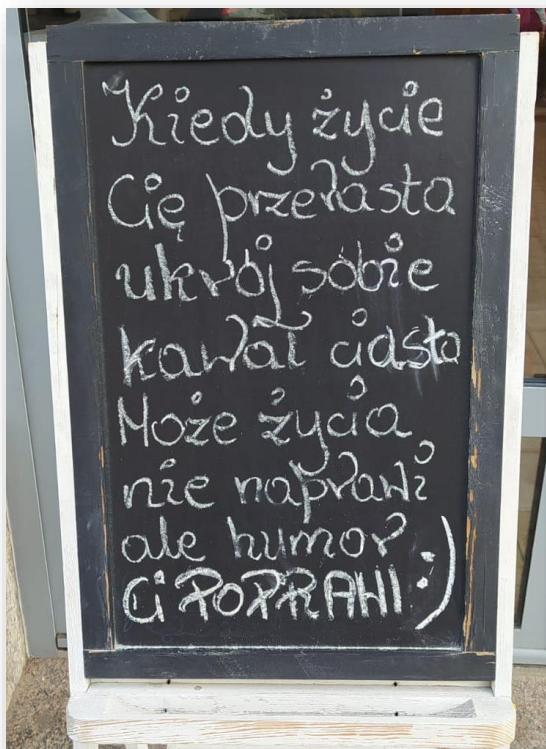 Kiedy życie
Cię przerasta
ukrój sobie
kawał ciasta
Może życia
nie naprawi
ale humor
Ci POPRAWI :)